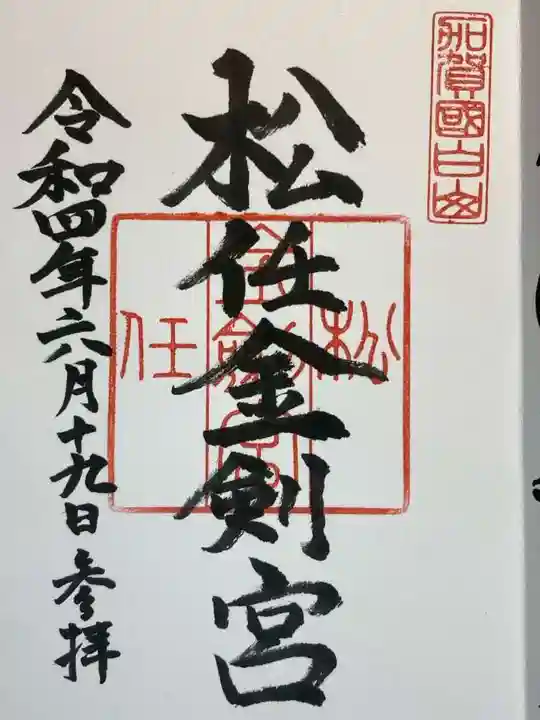 加賀國白山
松任金剣宮
松
金剣宮
任
令和四年六月十九日参拝